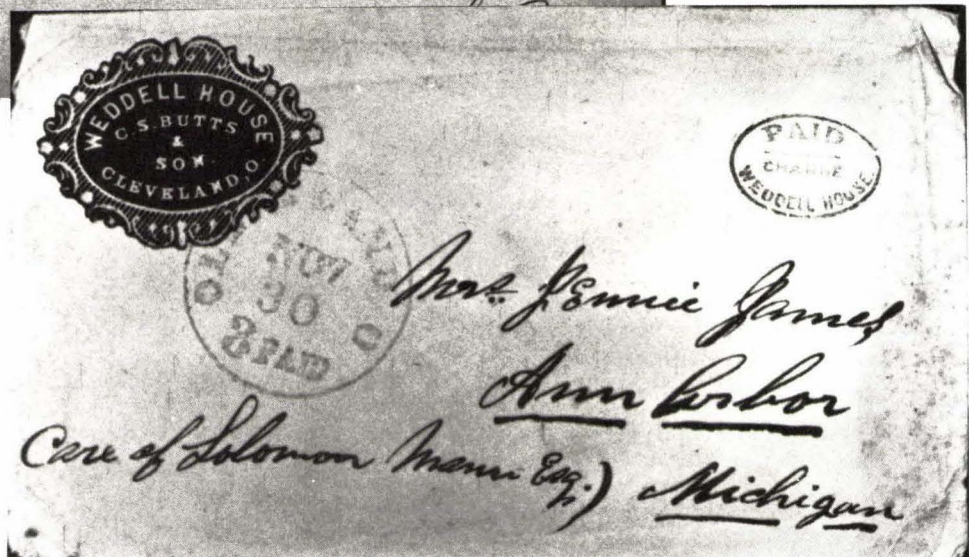 WEDDELL HOUSE
C. S. BUTTS
&
SON.
CLEVELAND, O
PAID
CHARGE
WEDDELL HOUSE.
CLEVELAND O
NOV
30
3 PAID
Mrs. Jennie James
Ann Arbor
Care of Solomon Mann Esq.) Michigan